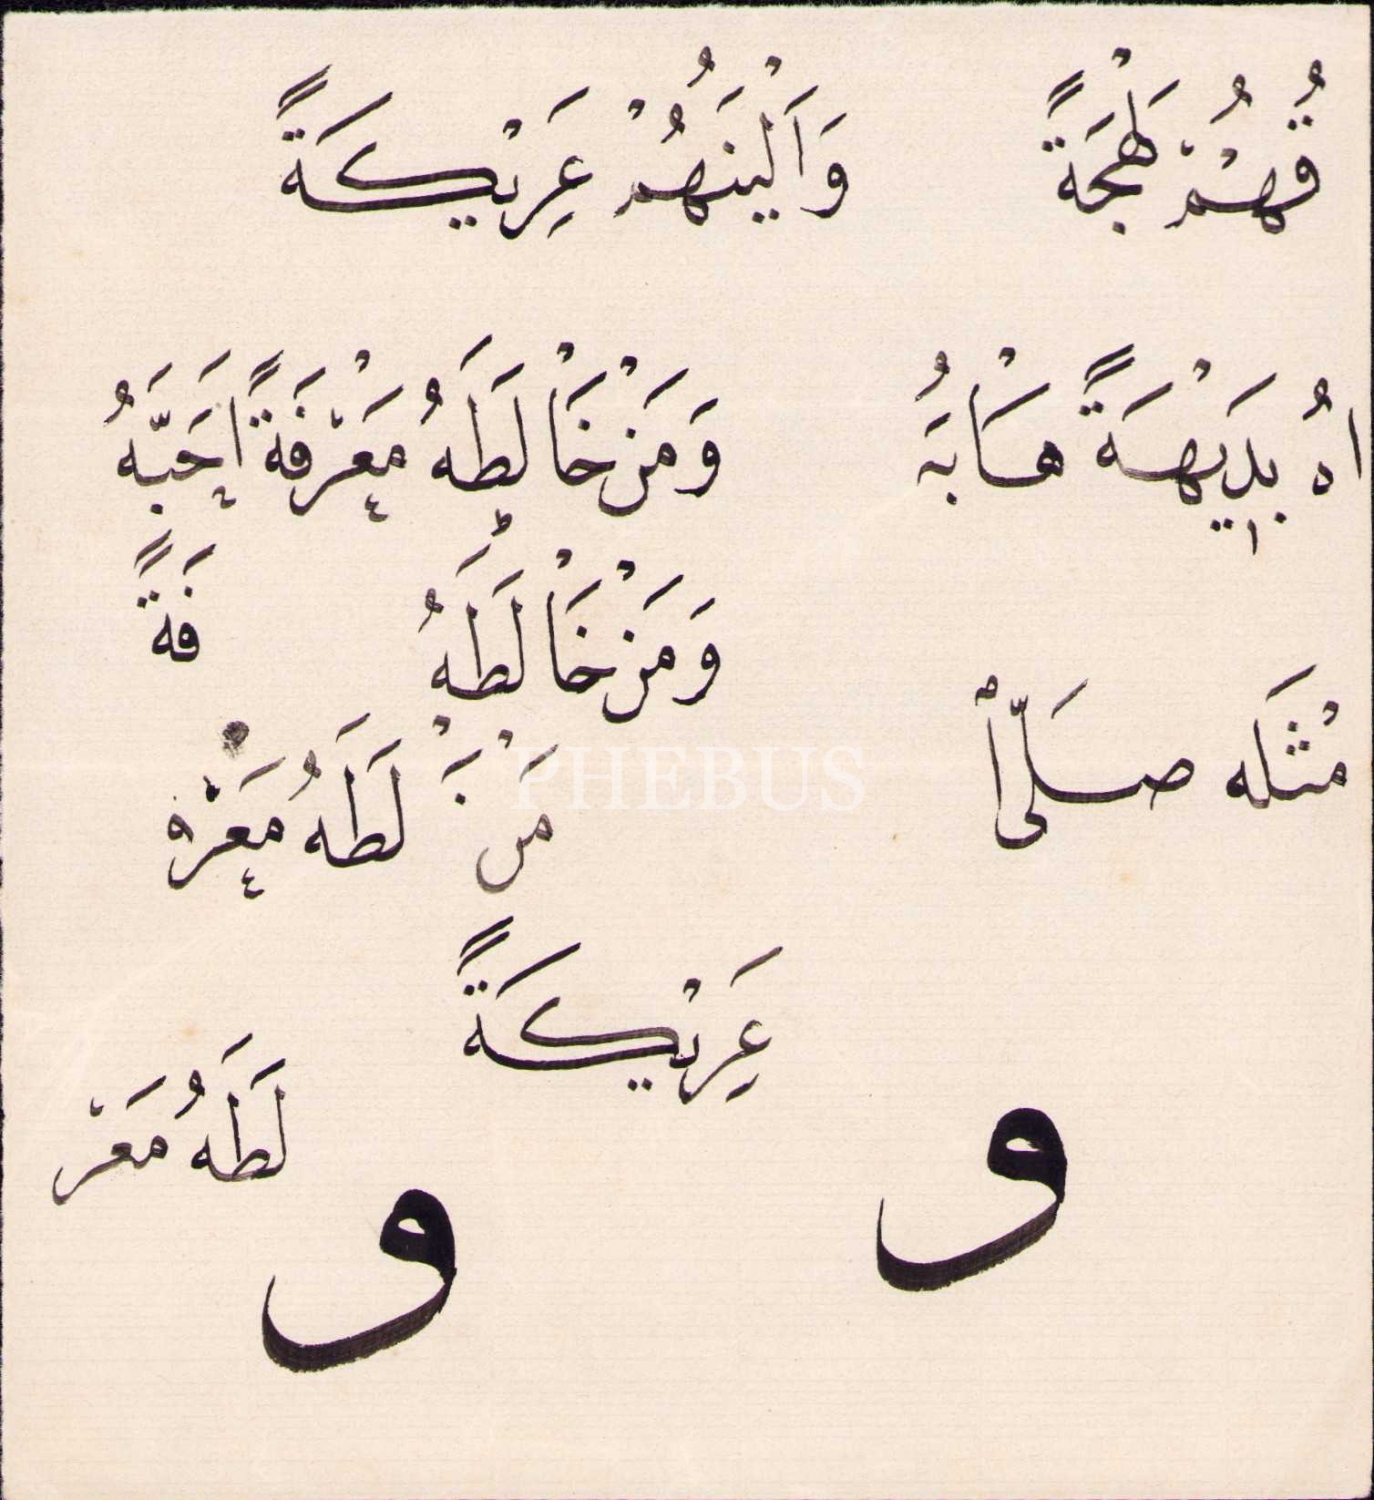 قُهُمْ لَهْجَةً وَاَلْيَنَهُمْ عَرِيْكَةً
اهُ بَدِيْهَةً هَابَهُ وَمَنْ خَالَطَهُ مَعْرِفَةً اَحَبَّهُ
وَمَنْ خَالَطَهُ فَةً
مِثْلَه صَلَّى ا
مَنْ لَطَهُ مَعْرِو
عَرِيْكَةً
لَطَهُ مَعْر
و
و
PHEBUS